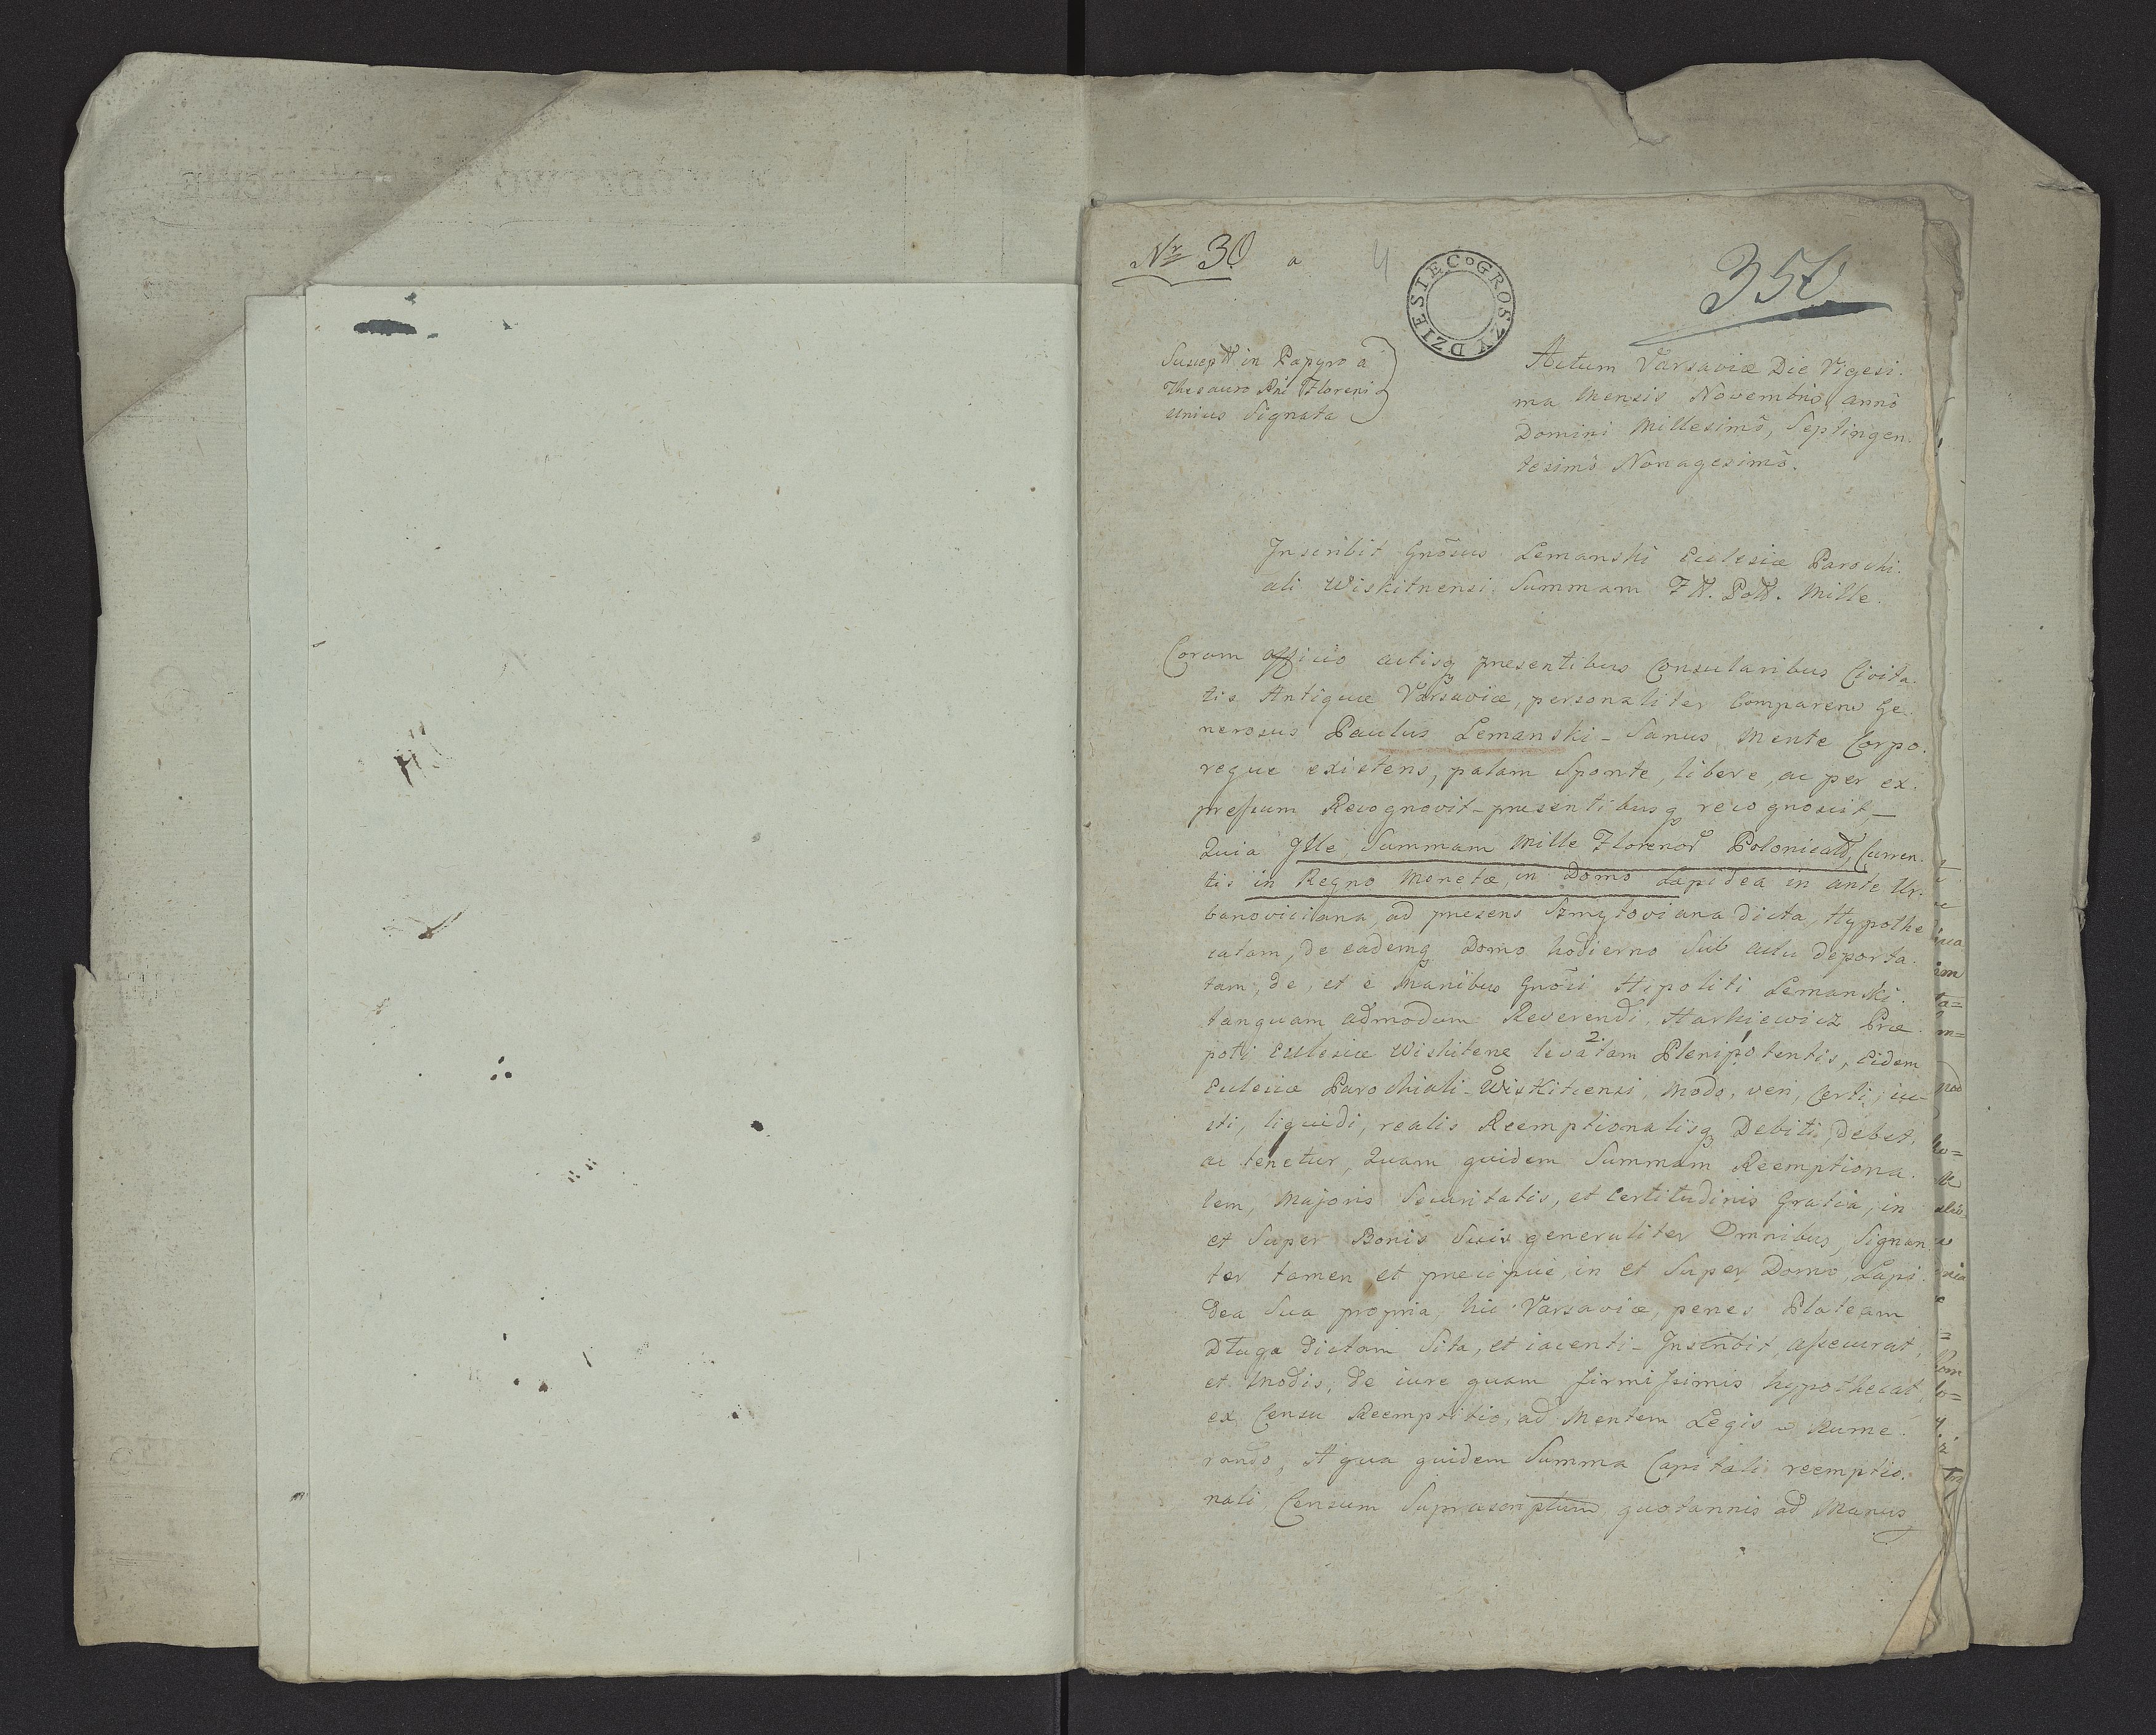 Nr 30 a 4
DZIESIEC GROSZY
350
Suscept in Papyro a
Thesauro Rni Floreni
unius Signata
Actum Varsaviæ Die Vigesi.
ma Mensis Novembris, anno
Domini Millesimo, Septingen.
tesimo Nonagesimo.
Inscribit Gnosus Lemanski Ecclesiæ Parochi.
ali Wiskitnensi Summam Fl. Poll. Mille.
Coram officio actisq presentibus Consularibus Civita.
tis Antiquæ Varsaviæ, personaliter Comparens Ge.
nerosus Paulus Lemanski - Sanus Mente Corpo.
reque existens, palam Sponte, libere, ac per ex.
pressum Recognovit - presentibusq recognoscit, -
Quia Ille Summam Mille Florenor Polonical, Curren.
tis in Regno Monetæ, in Domo Lapidea in ante Ur.
banoviciana, ad presens Szmytoviana dicta, Hypothe
catam, de eademq Domo hodierno Sub actu deporta.
tam, de, et e Manibus Gnosi Hipoliti Lemanski.
tanquam admodum Reverendi, Harkiewicz Præ.
potti Ecclesiæ Wiskitene levatam Plenipotentis, Eidem
2.
Eclesiæ Parochiali - Wiskitiensi, modo, veri, Certi, iu-
sti, liquidi, realis Reemptionalisq Debiti, debet,
ac tenetur, Quam quidem Summam Reemptiona.
lem, Majoris Securitatis, et Certitudinis Gratia, in
et Super Bonis Suis generaliter Omnibus, Signan
ter tamen et precipue, in et Super Domo, Lapi.
dea Sua propria, hic Varsaviæ, penes Plateam
Długa dictam Sita, et iacenti - Inscribit, assecurat,
et Modis, de iure quam firmissimis hypothecat,
ex Censu Reemptitio, ad Mentem Legis Nume.
rando, A qua quidem Summa Capitali reemptio.
nali Censum Suprascriptum quotannis ad Manus